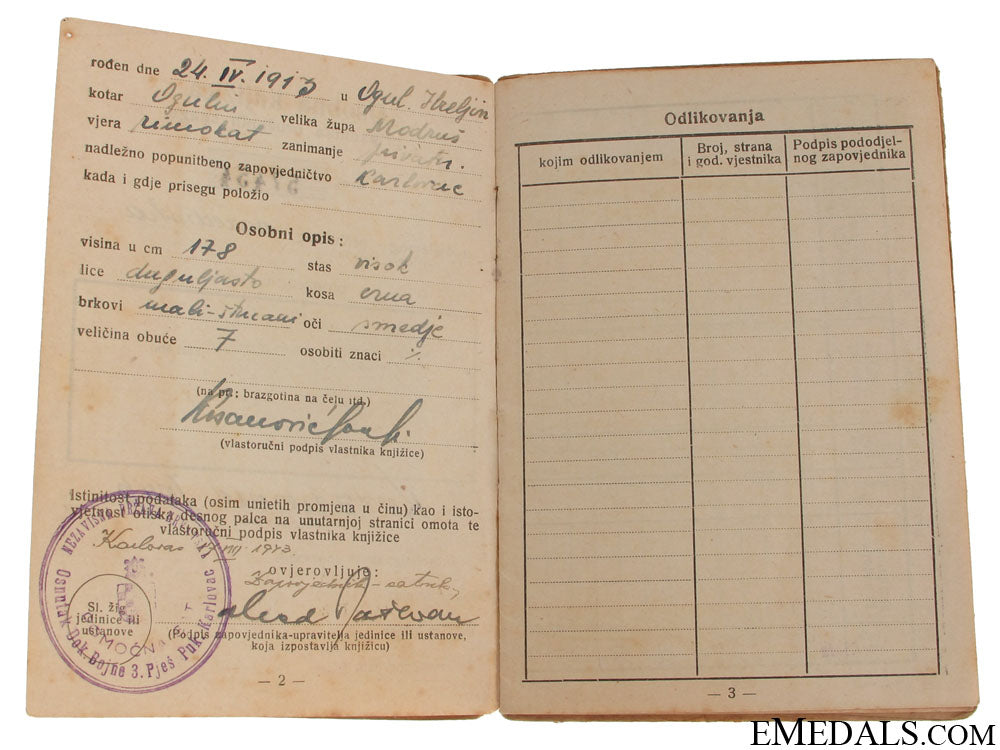 rođen dne 24. IV. 1913 u Ogul. Hreljin
kotar Ogulin velika župa Modruš
vjera rimokat zanimanje privatn.
nadležno popunitbeno zapovjedničtvo Karlovac
kada i gdje prisegu položio
Osobni opis:
visina u cm 178 stas visok
lice duguljasto kosa crna
brkovi mali-štucani oči smedje
veličina obuće 7 osobiti znaci ٪
(na pr.: brazgotina na čelu itd.)
(vlastoručni podpis vlastnika knjižice)
Istinitost podataka (osim unietih promjena u činu) kao i isto-
vjetnost otiska desnog palca na unutarnjoj stranici omota te
vlastoručni podpis vlastnika knjižice
Karlovac 1943.
ovjerovljuje:
Zapovjednik - satnik,
Sl. žig
jedinice ili
ustanove
(Podpis zapovjednika-upravitelja jedinice ili ustanove,
koja izpostavlja knjižicu)
NEZAVISNA DRŽAVA
Dok. Bojne 3. Pješ Puk. Karlovac
— 2 —
Odlikovanja
kojim odlikovanjem
Broj, strana
i god. vjestnika
Podpis pododjel-
nog zapovjednika
— 3 —
EMEDALS.COM